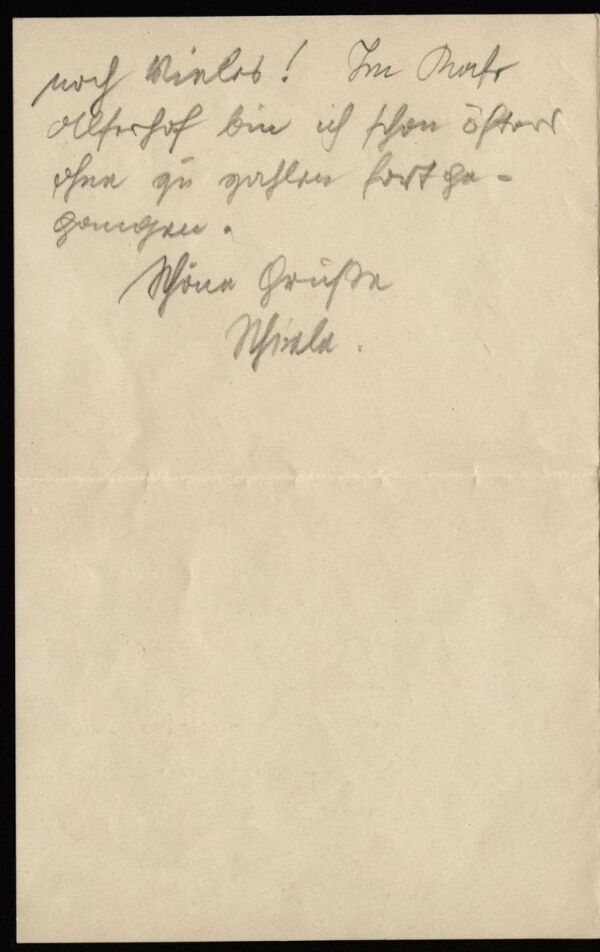 noch Vieles! Im Kafe
Alserhof bin ich schon öfters
ohne zu zahlen fortge-
gangen.
Schöne Grüße
Schiele.